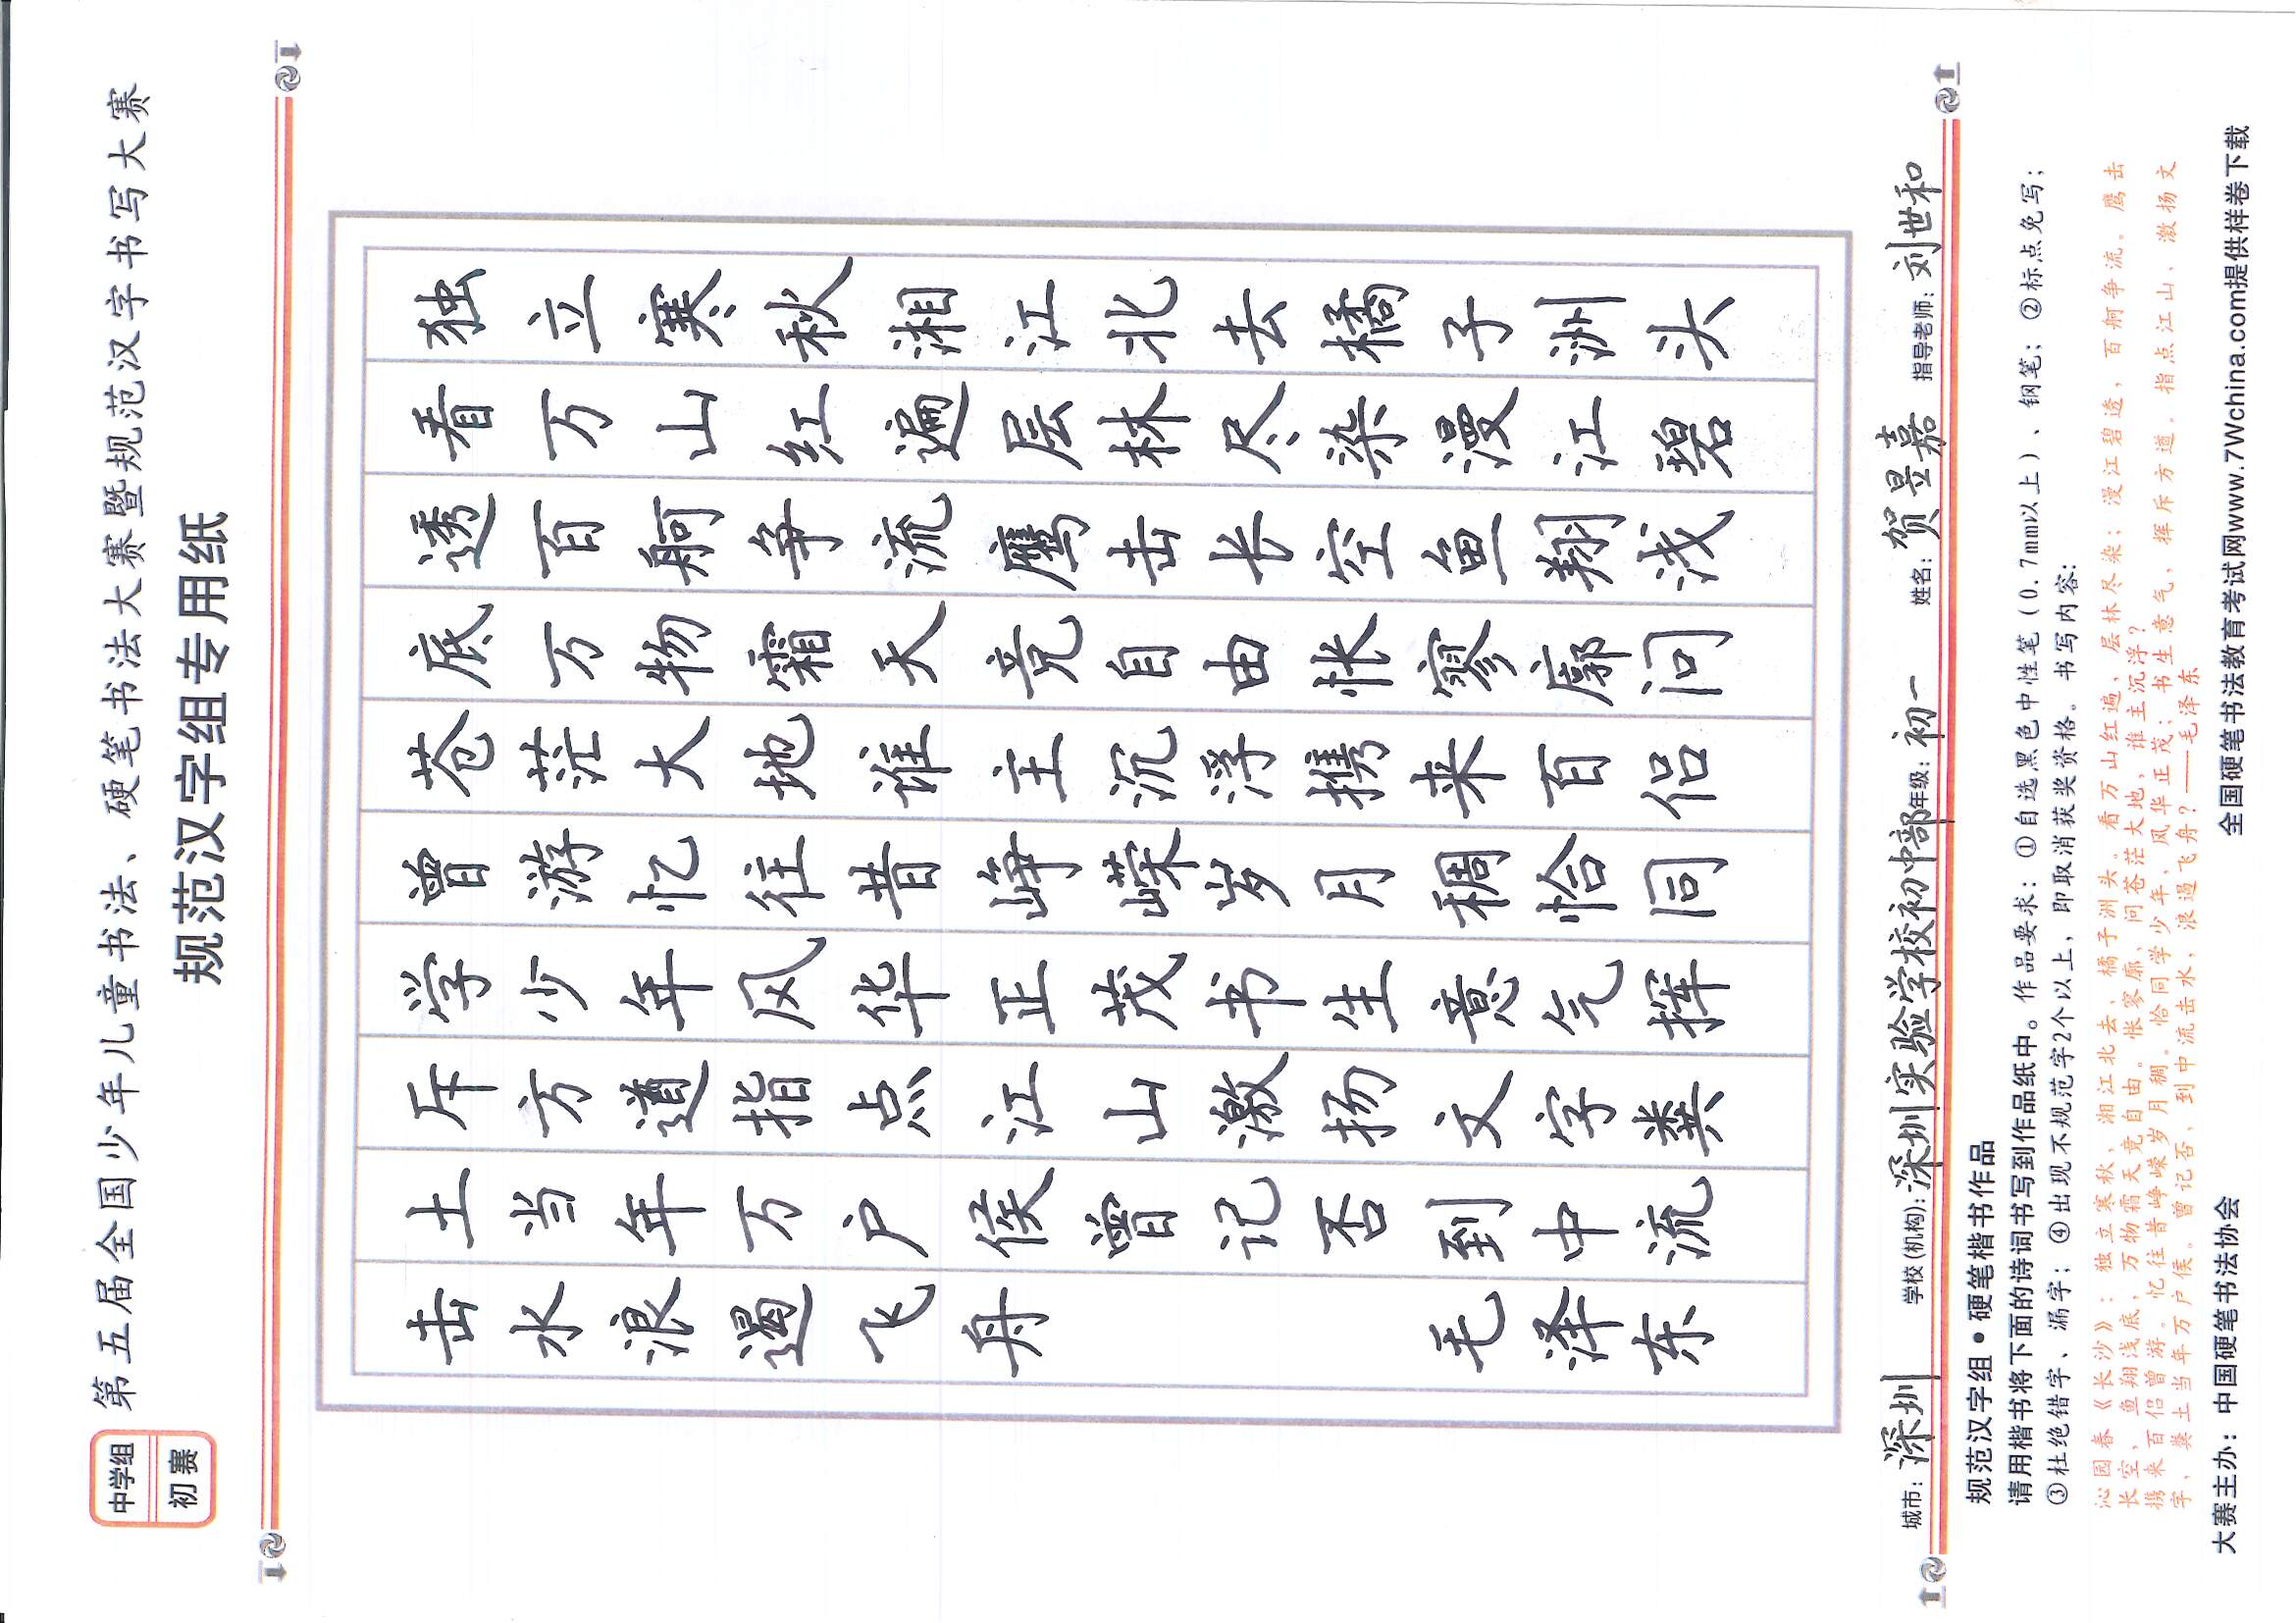 中学组
初赛
第五届全国少年儿童书法、硬笔书法大赛暨规范汉字书写大赛
规范汉字组专用纸
独立寒秋湘江北去橘子洲头
看万山红遍层林尽染漫江碧
透百舸争流鹰击长空鱼翔浅
底万物霜天竞自由怅寥廓问
苍茫大地谁主沉浮携来百侣
曾游忆往昔峥嵘岁月稠恰同
学少年风华正茂书生意气挥
斥方遒指点江山激扬文字粪
土当年万户侯曾记否到中流
击水浪遏飞舟 毛泽东
城市：深圳 学校(机构)：深圳实验学校初中部 年级：初一 姓名：贺昱嘉 指导老师：刘世和
规范汉字组•硬笔楷书作品
请用楷书将下面的诗词书写到作品纸中。作品要求：①自选黑色中性笔（0.7mm以上）、钢笔；②标点免写；
③杜绝错字、漏字；④出现不规范字2个以上，即取消获奖资格。书写内容：
沁园春《长沙》：独立寒秋、湘江北去、橘子洲头。看万山红遍、层林尽染；漫江碧透，百舸争流。鹰击
长空，鱼翔浅底，万物霜天竞自由。怅寥廓，问苍茫大地，谁主沉浮？
携来百侣曾游。忆往昔峥嵘岁月稠。恰同学少年、风华正茂；书生意气，挥斥方遒。指点江山、激扬文
字、粪土当年万户侯。曾记否、到中流击水，浪遏飞舟？——毛泽东
大赛主办：中国硬笔书法协会 全国硬笔书法教育考试网www.7Wchina.com提供样卷下载